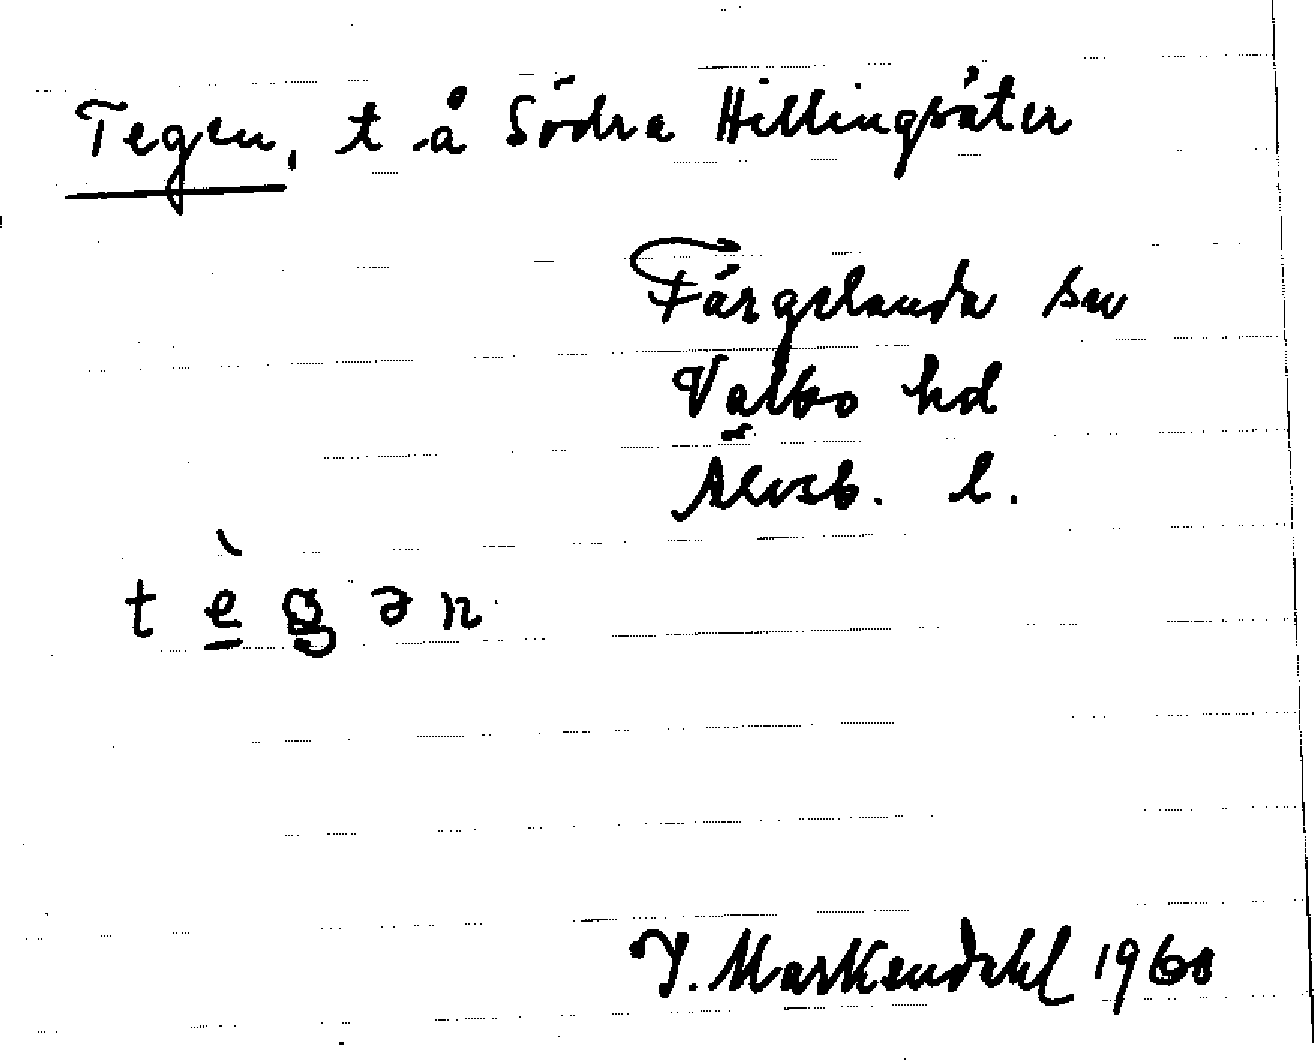 Tegen, t å Södra Hillingsäter
Färgelanda sn
Valbo hd
Älvsb. l.
tègən
Y. Markendahl 1960